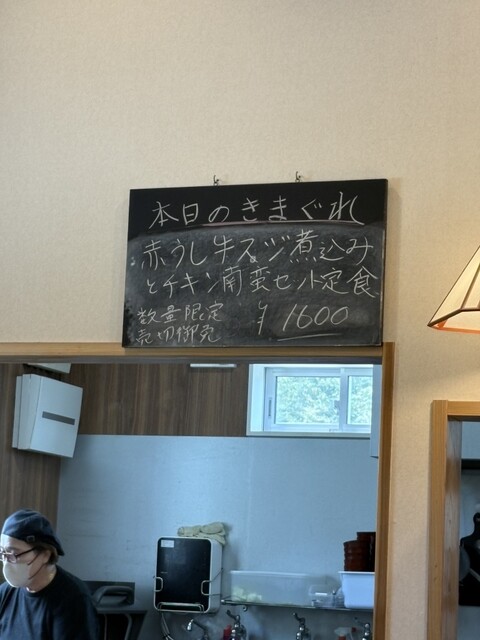 本日のきまぐれ
赤うし牛スジ煮込み
とチキン南蛮セット定食
数量限定
売切御免
¥1600